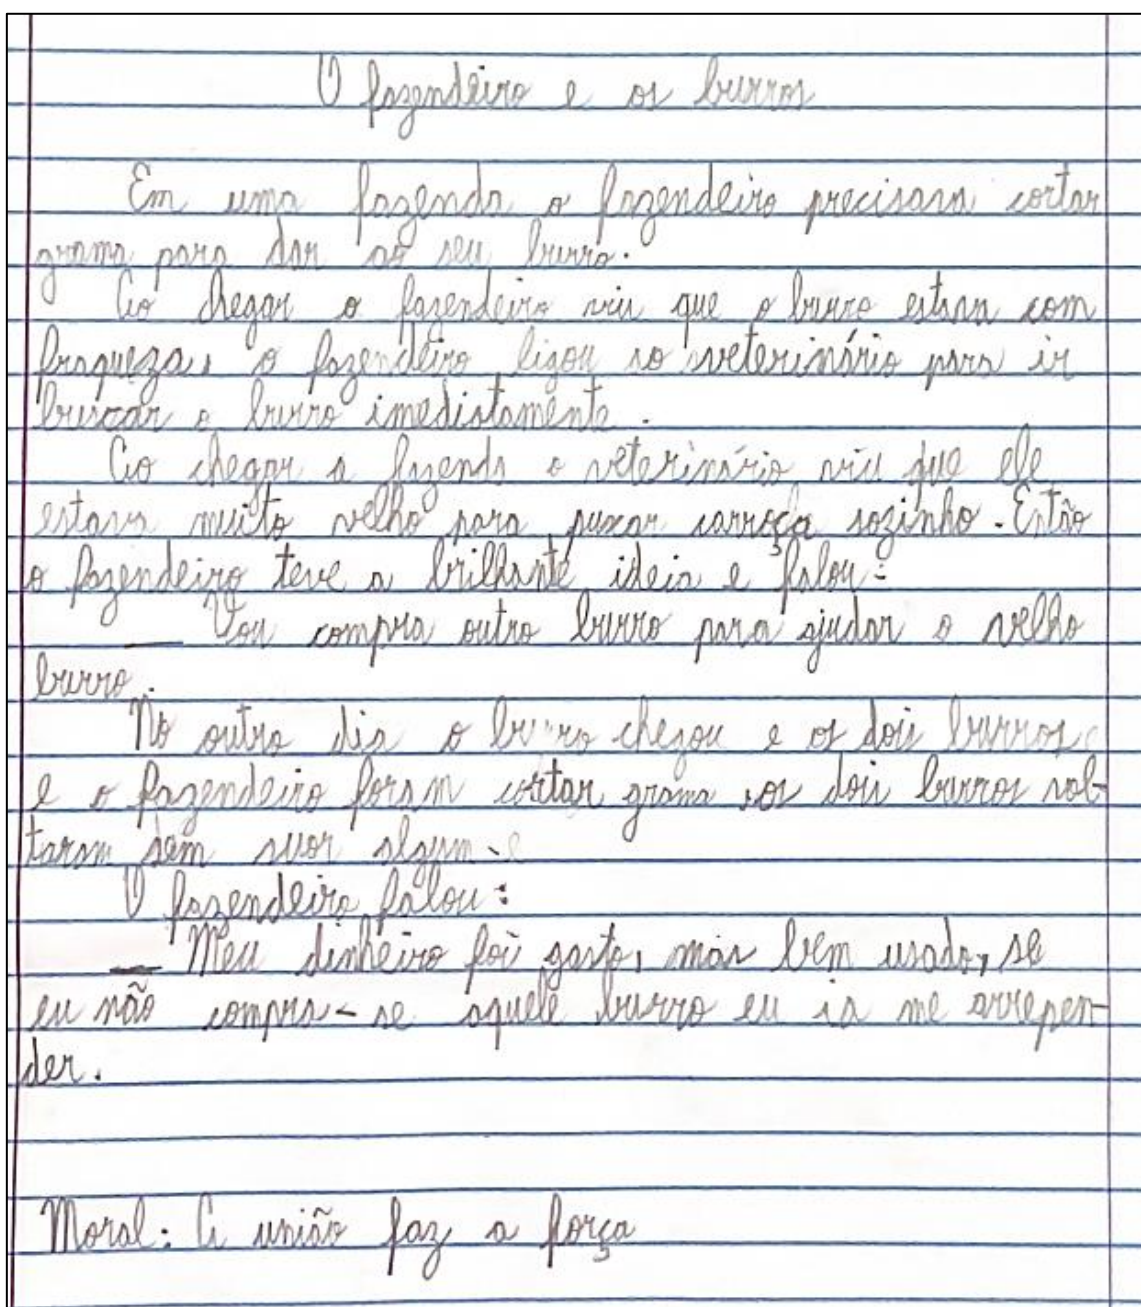 O fazendeiro e os burros
Em uma fazenda o fazendeiro precisava cortar
grama para dar ao seu burro.
Ao chegar o fazendeiro viu que o burro estava com
fraqueza, o fazendeiro ligou ao veterinário para ir
buscar o burro imediatamente.
Ao chegar a fazenda o veterinário viu que ele
estava muito velho para puxar carroça sozinho. Então
o fazendeiro teve a brilhante ideia e falou:
— Vou compra outro burro para ajudar o velho
burro.
No outro dia o burro chegou e os dois burros
e o fazendeiro foram cortar grama, os dois burros vol-
taram sem suor algum.
O fazendeiro falou:
— Meu dinheiro foi gasto, mas bem usado, se
eu não compra-se aquele burro eu ia me arrepen-
der.
Moral: A união faz a força